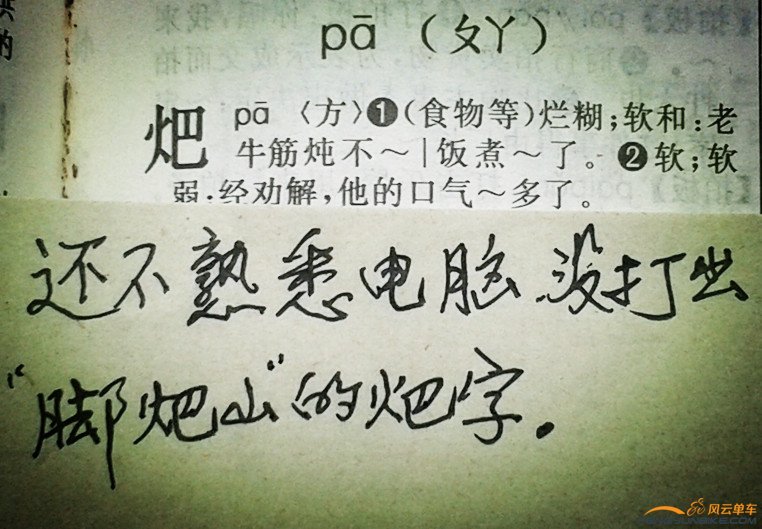 pā（ㄆㄚ）
𤆵 pā〈方〉❶(食物等)烂糊;软和:老
牛筋炖不～|饭煮～了。❷软;软
弱:经劝解,他的口气～多了。
还不熟悉电脑 没打出
“脚𤆵山”的𤆵字。
风云单车
FENGYUNBIKE.COM